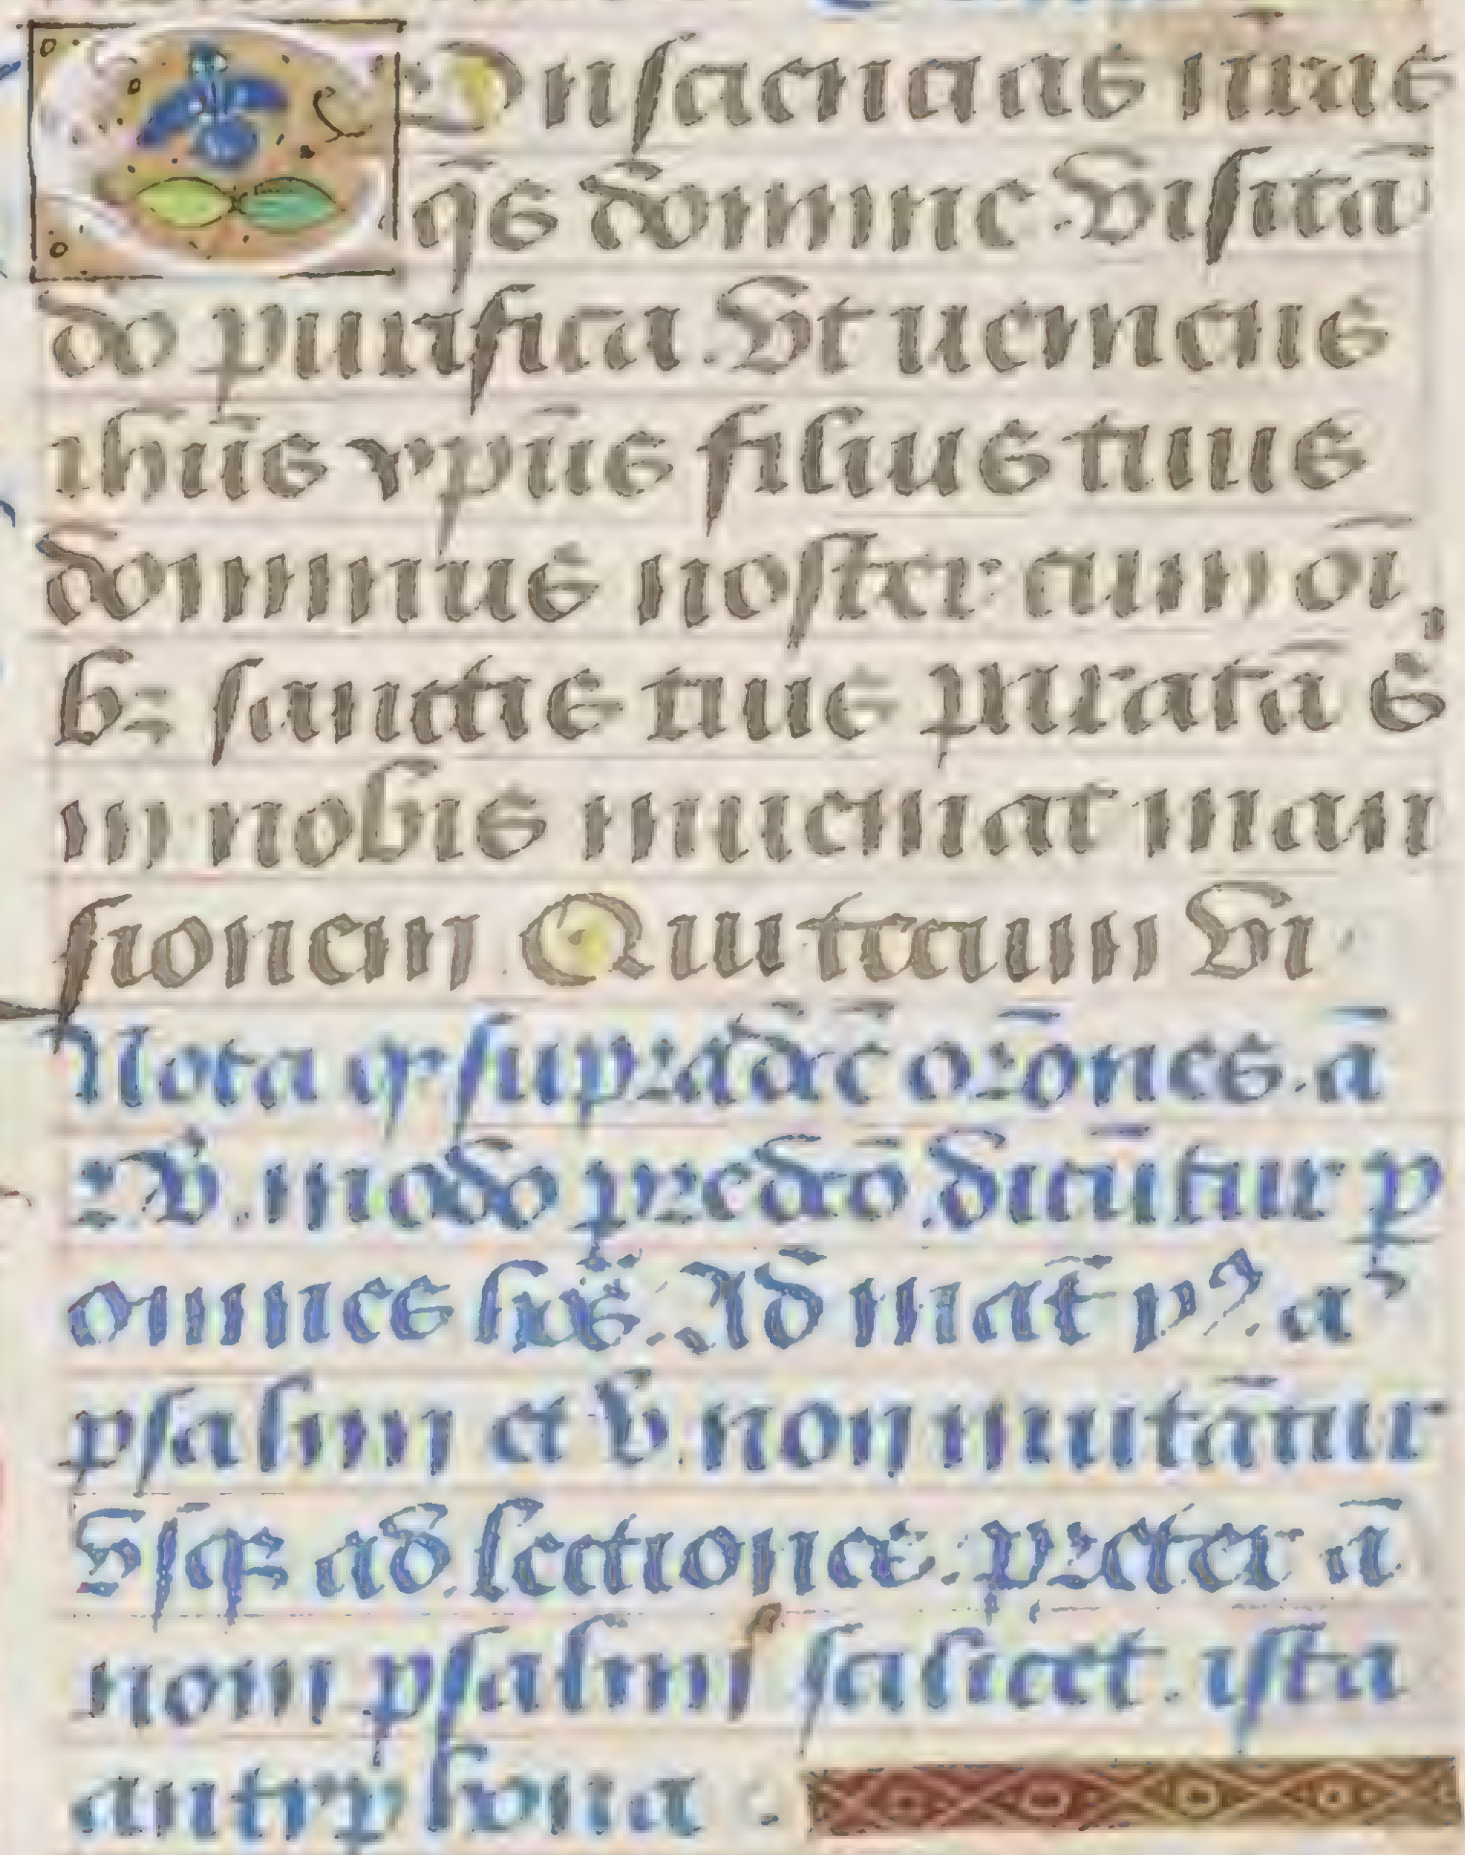 Onsciencias nr̄as
q̄s domine visitā
do purifica. Vt ueniens
ihūs xp̄us filius tuus
dominus noster cum oī
bꝫ sanctis tuis paratā s'
in nobis inueniat man
sionem Qui tecum vi
Nota qꝫ supradc̄ē orōnes. ā
modo predcō dicūtur ꝑ
omnes horas. Ad mat̄
psalmi et v̄. non mutātur
vsqꝫ ad lectiones. preter ā
nom psalmꝰ scilicet. ista
antiphona